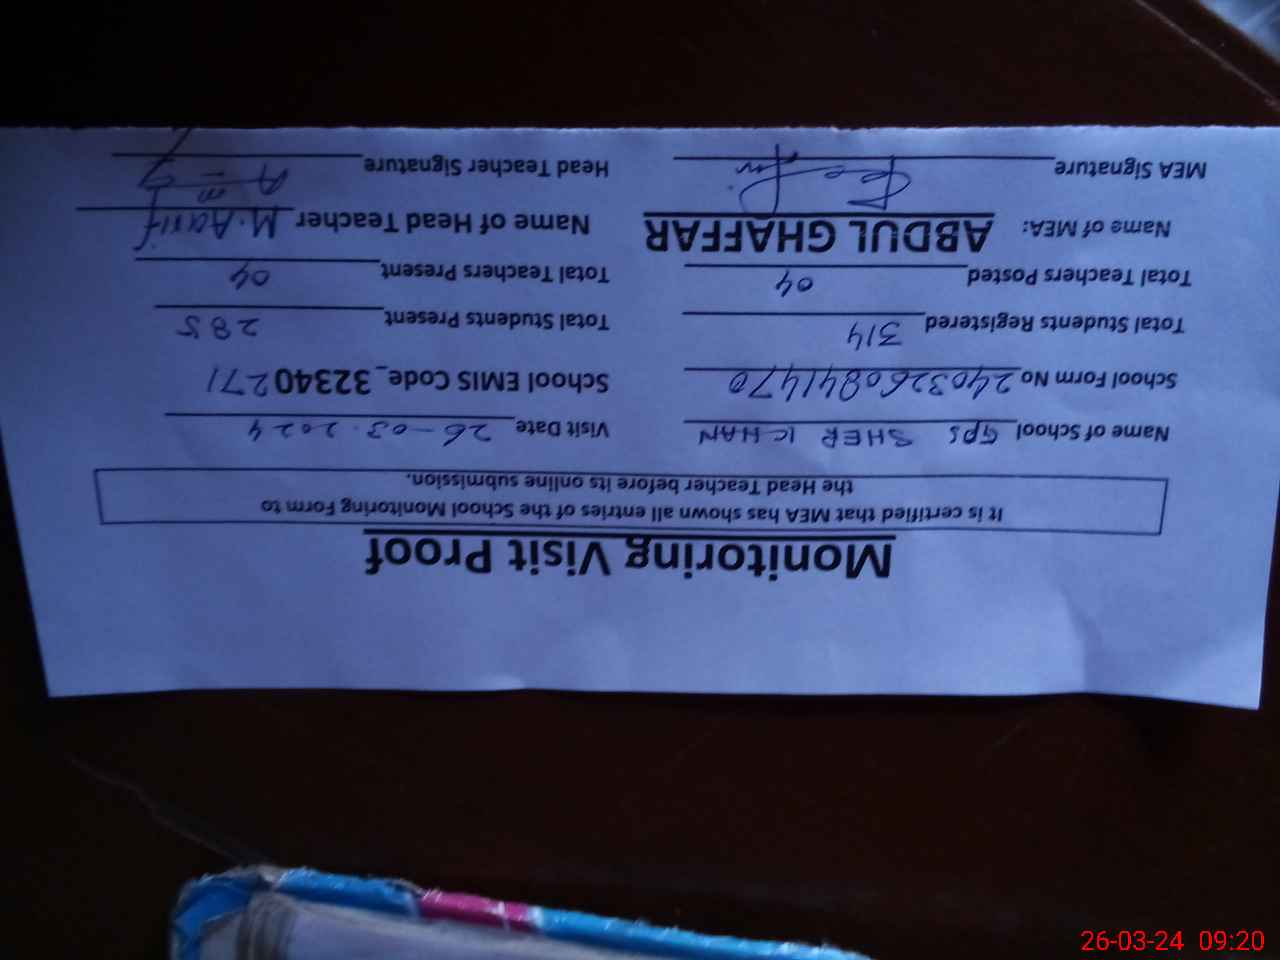 Monitoring Visit Proof
It is certified that MEA has shown all entries of the School Monitoring Form to
the Head Teacher before its online submission.
Name of School GPS SHER KHAN Visit Date 26-03-2024
School Form No 2403260841470 School EMIS Code_32340271
Total Students Registered 314 Total Students Present 285
Total Teachers Posted 04 Total Teachers Present 04
Name of MEA: ABDUL GHAFFAR Name of Head Teacher M. Aarif
MEA Signature Head Teacher Signature
26-03-24 09:20